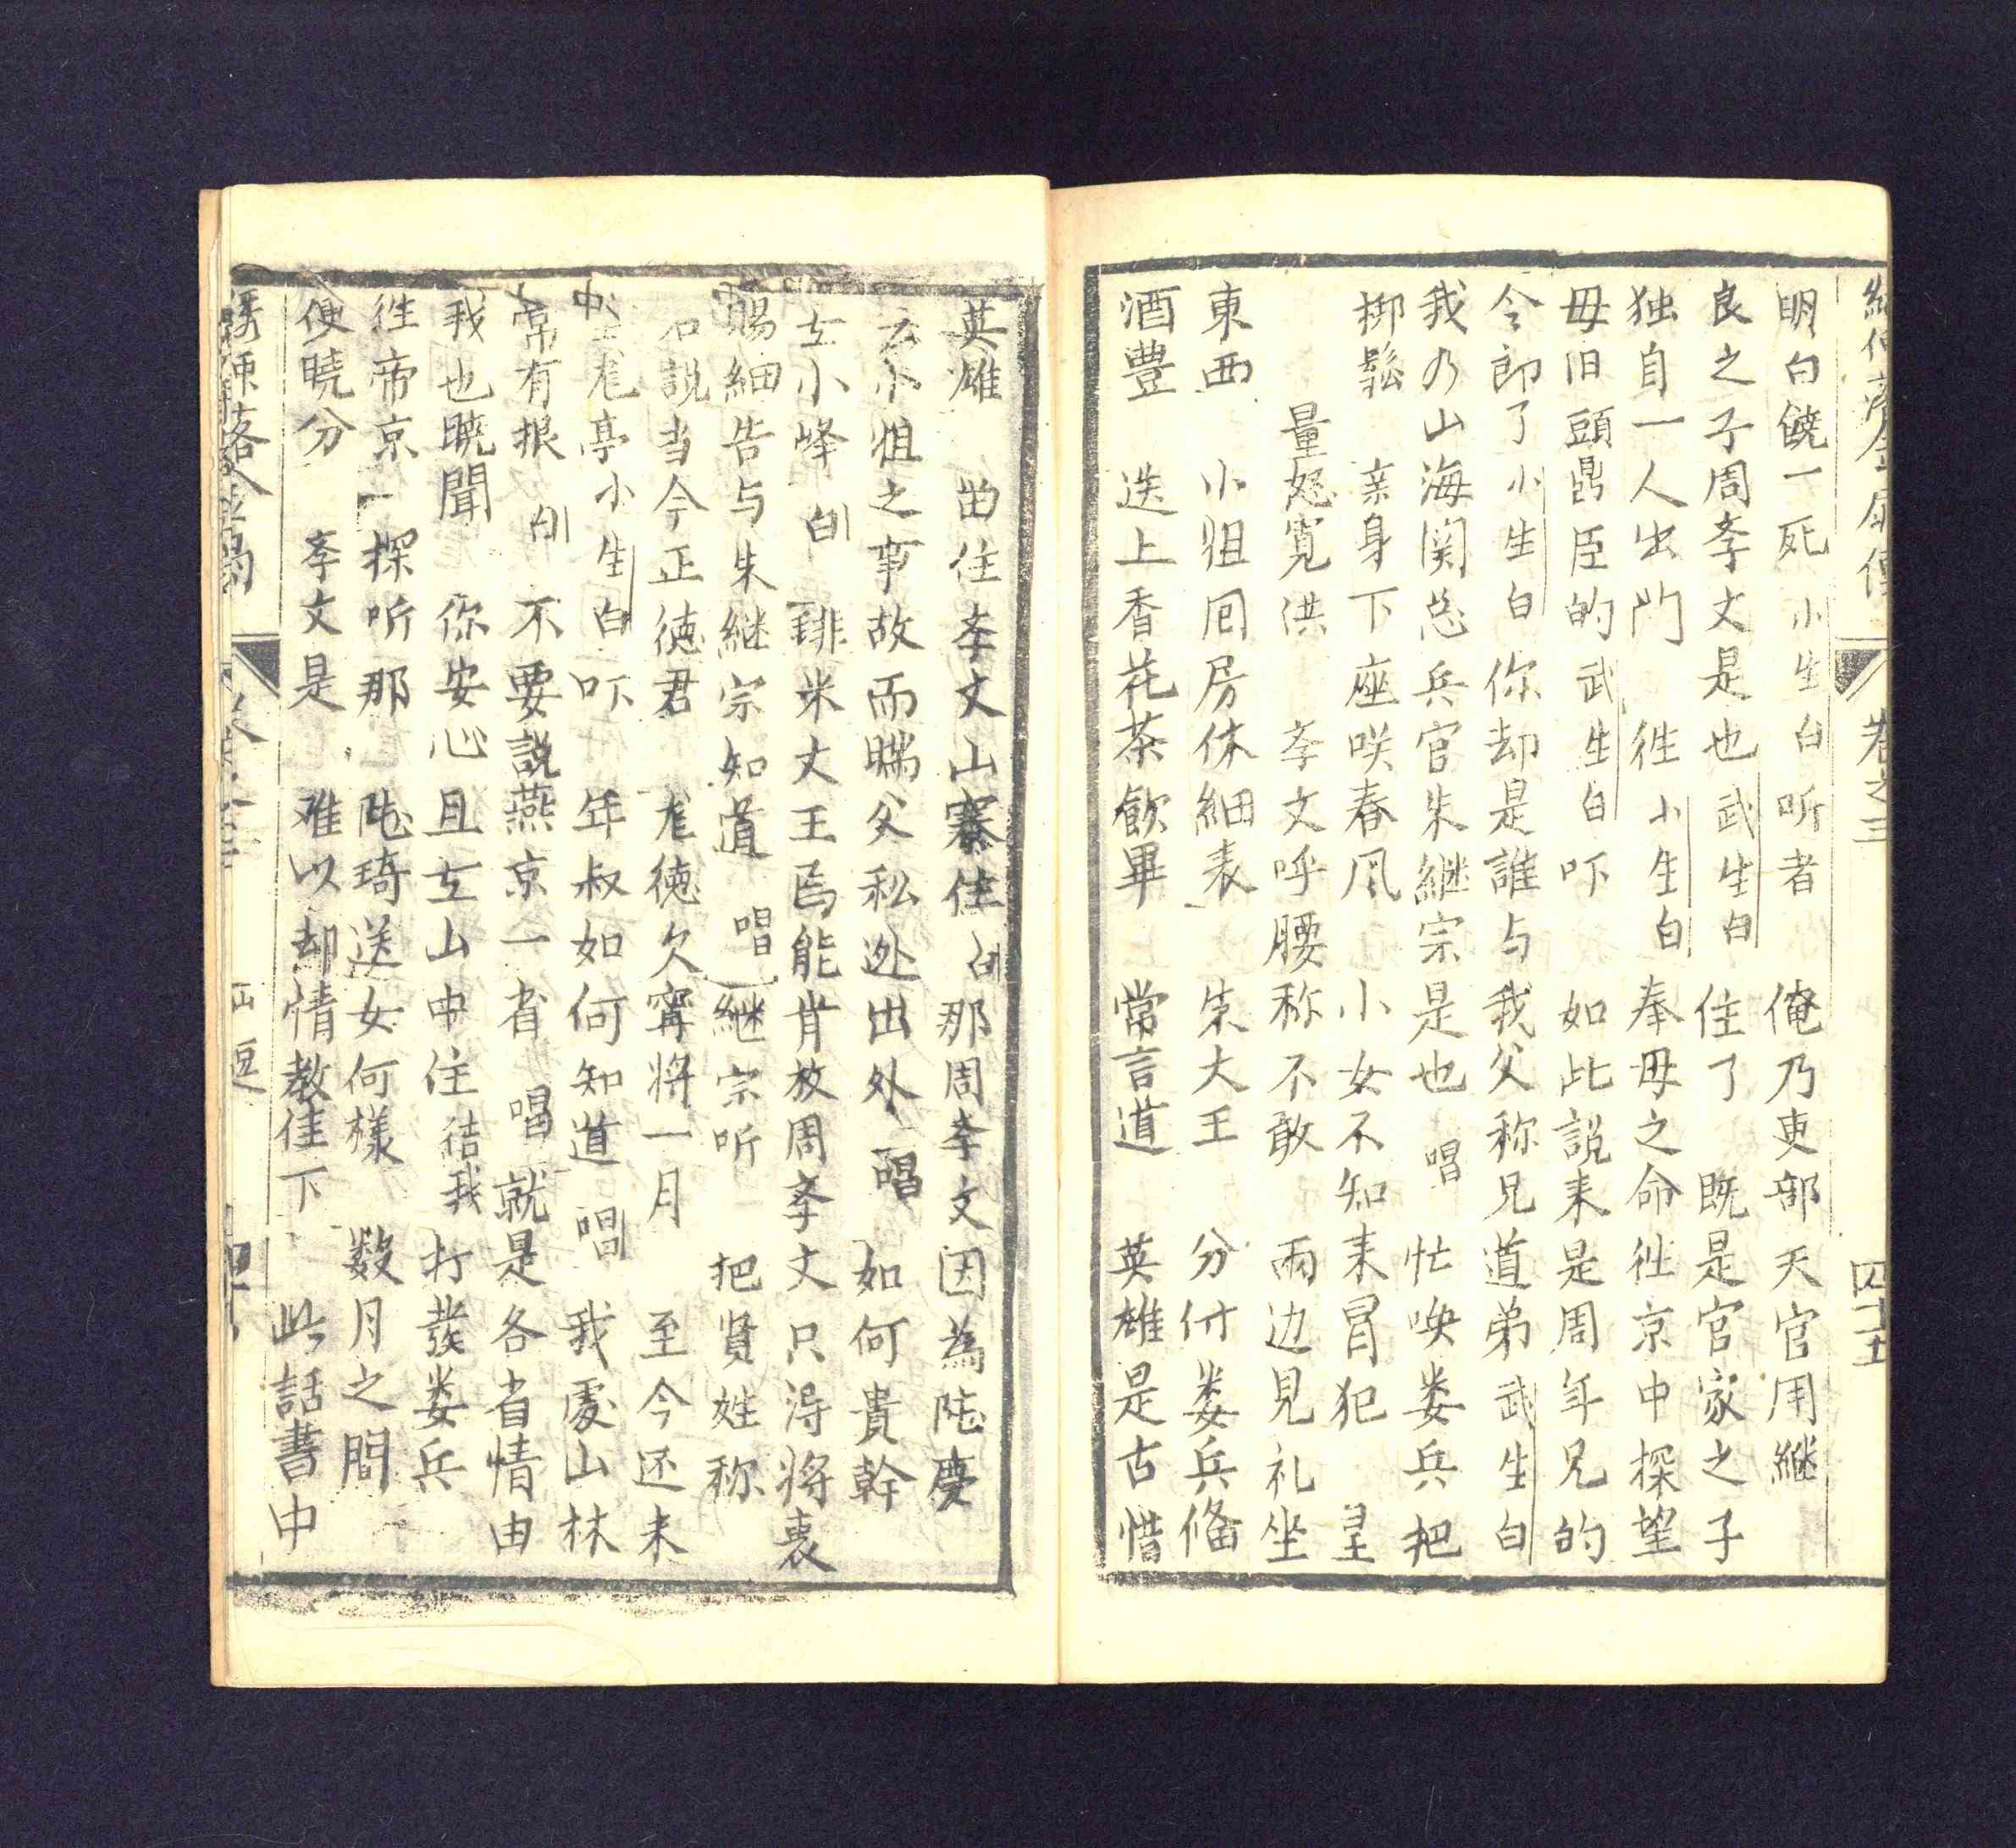 卷之三 四十五
明白饒一死 小生白 听者 俺乃吏部天官用継
良之子周李文是也 武生白 住了 既是官家之子
独自一人出門 徃 小生白 奉母之命徃京中探望
母旧頭鼎臣的 武生白 吓 如此説来是周年兄的
令郎了 小生白 你却是誰与我父称兄道弟 武生白
我乃山海関总兵官朱継宗是也 唱 忙喚娄兵把
挷鬆 亲身下座咲春风 小女不知来冒犯 望
量恕寛洪 李文呼腰称不敢 兩边見礼坐
東西 小姐囘房休細表 朱大王 分付娄兵俻
酒豊 迭上香花茶飲畢 常言道 英雄是古惜
英雄 畄住李文山寨住 白 那周李文因為陡慶
云小姐之事故而瞞父私迯出外 唱 如何貴幹
在小峰 白 琲米丈王焉能肯放周李文只淂將衷
腸細告与朱継宗知道 唱 継宗听 把賢姪称
不説当今正徳君 尨徳欠寗將一月 至今还未
尨亭 小生白 吓 年叔如何知道 唱 我處山林
常有报 白 不要説燕京一省 唱 就是各省情由
我也暁聞 你安心且在山中住 待我 打發娄兵
徃帝京 探听那 陡琦送女何樣 数月之間
便曉分 李文是 难以却情教住下 此話書中